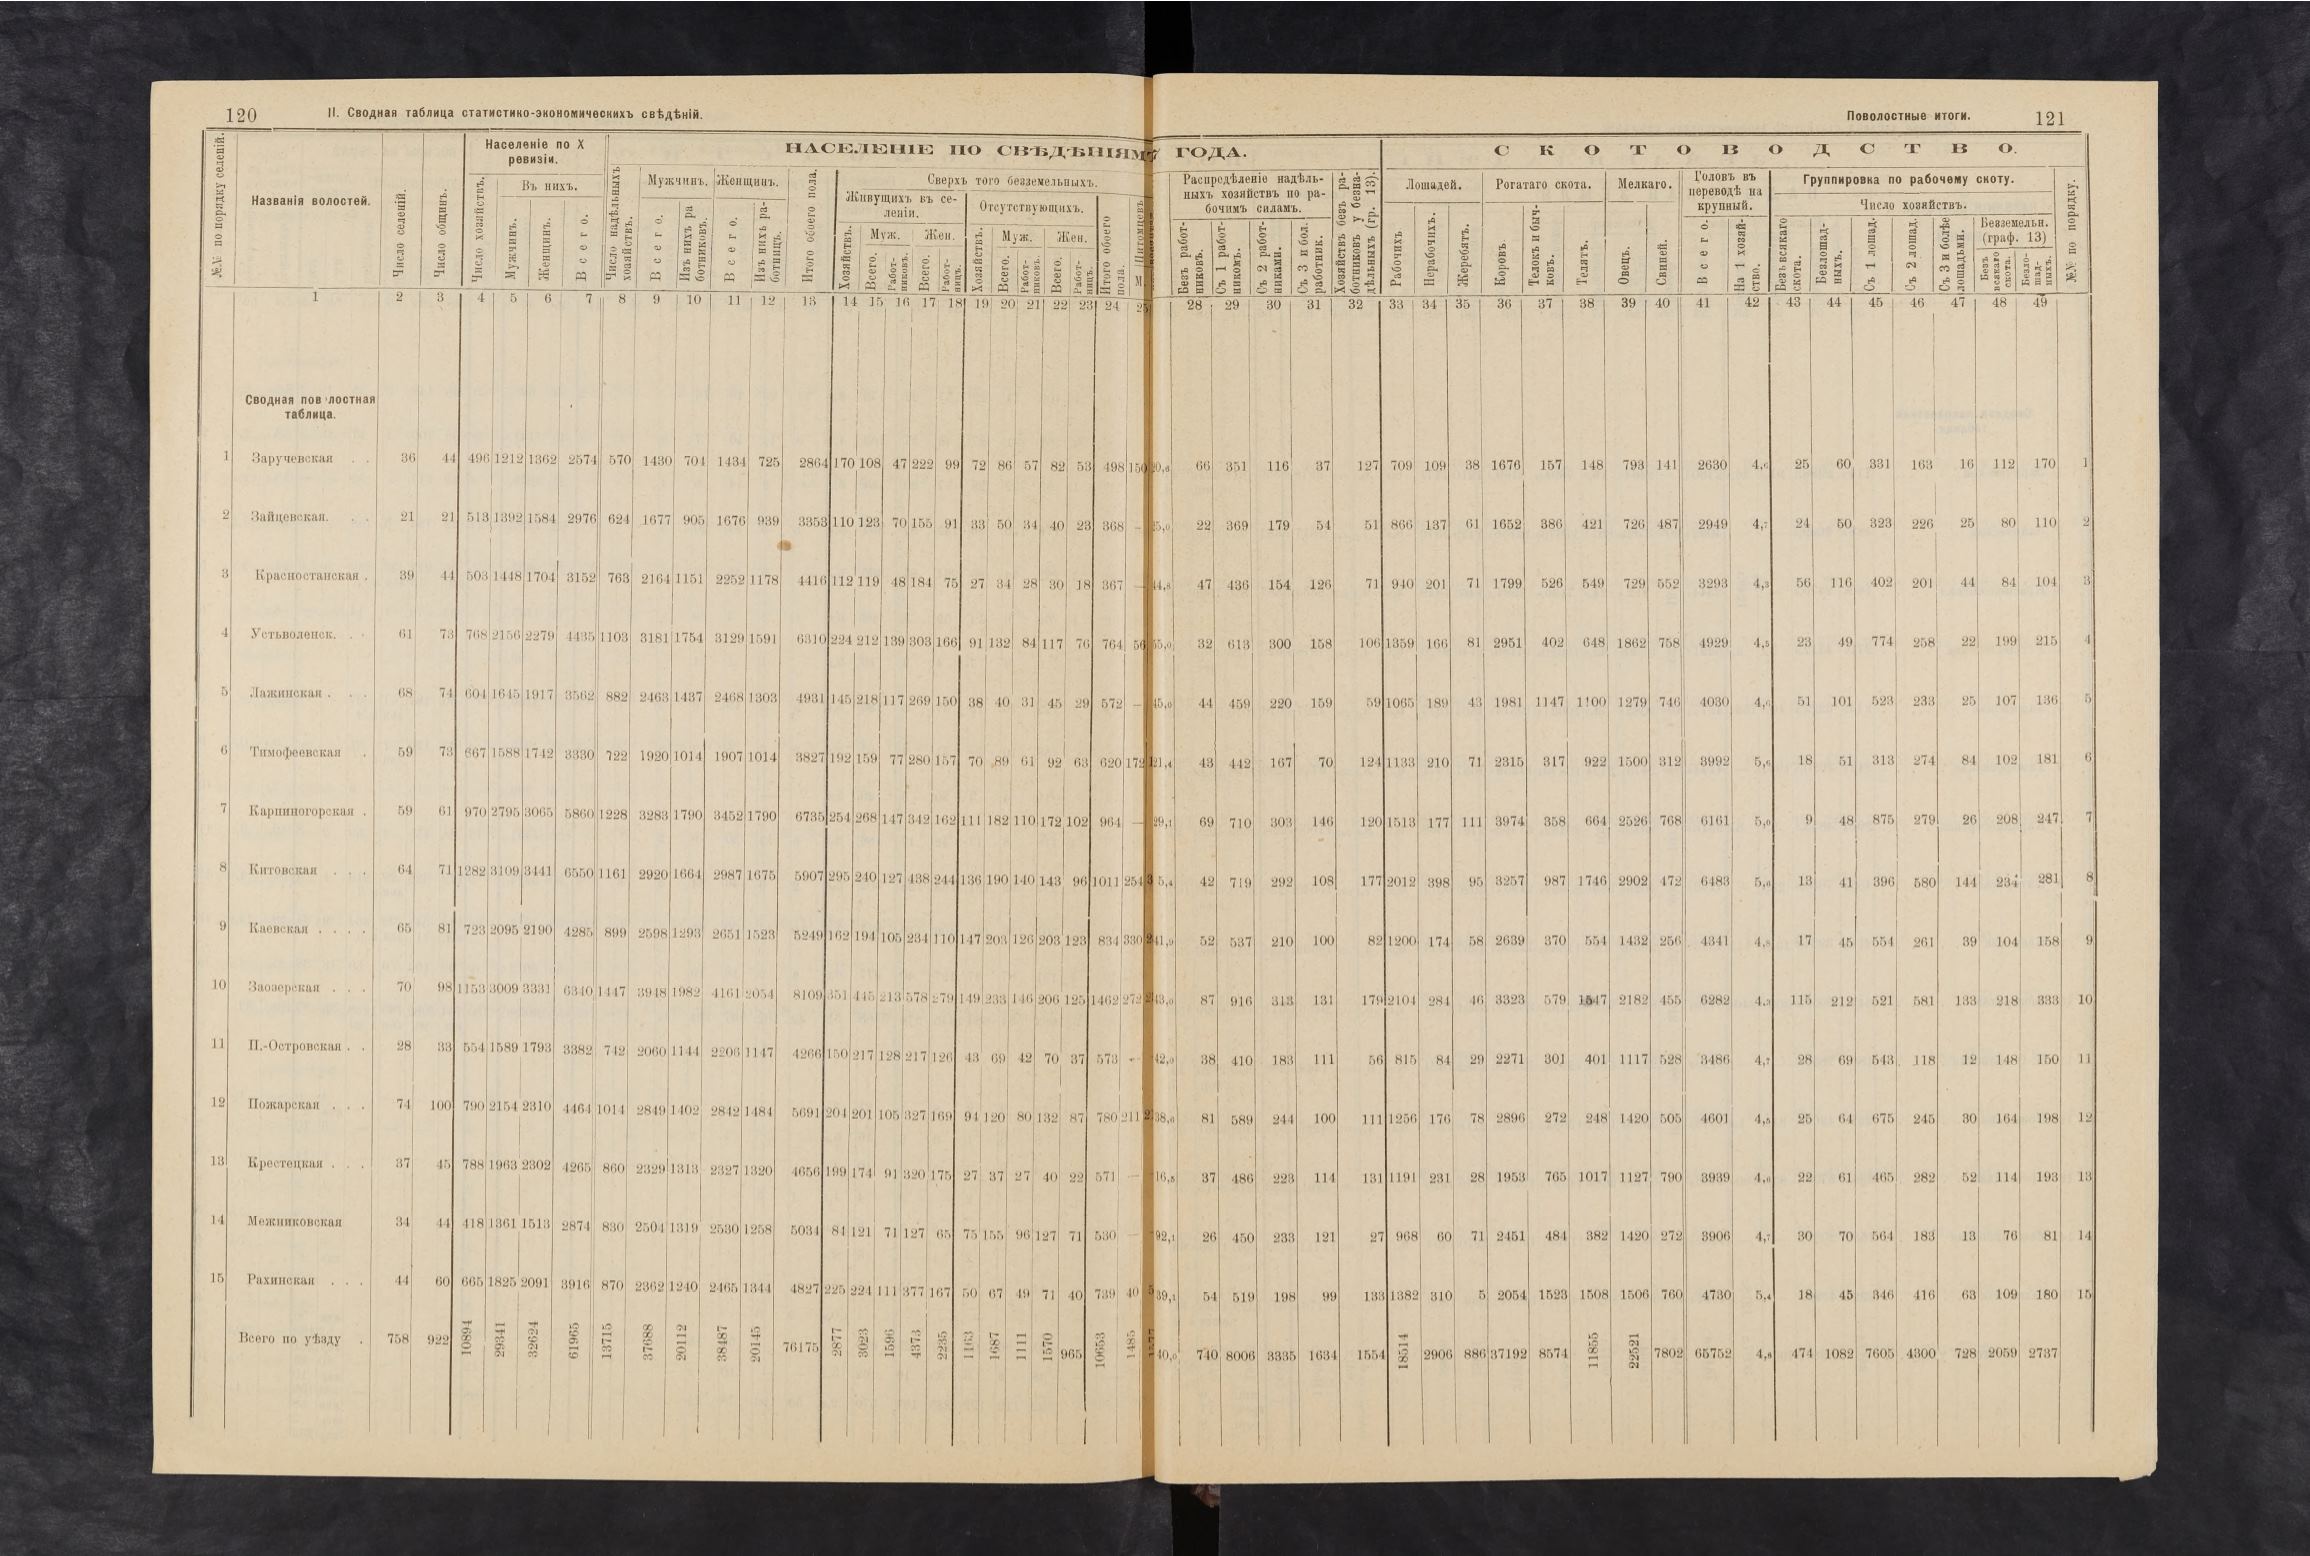 120
II. Сводная таблица статистико-экономическихъ свѣдѣній.
Поволостные итоги.
121
№№ по порядку селеній.
Названія волостей.
Число селеній.
Число общинъ.
Населеніе по X ревизіи.
Число хозяйствъ.
Въ нихъ.
Мужчинъ.
Женщинъ.
Всего.
НАСЕЛЕНІЕ ПО СВѢДѢНІЯМ ГОДА.
Число надѣльныхъ хозяйствъ.
Мужчинъ.
Всего.
Изъ нихъ работниковъ.
Женщинъ.
Всего.
Изъ нихъ работницъ.
Итого обоего пола.
Сверхъ того безземельныхъ.
Живущихъ въ селеніи.
Хозяйствъ.
Муж.
Всего.
Работниковъ.
Жен.
Всего.
Работницъ.
Отсутствующихъ.
Хозяйствъ.
Муж.
Всего.
Работниковъ.
Жен.
Всего.
Работницъ.
Итого обоего пола.
Питомцевъ
М.
Распредѣленіе надѣльныхъ хозяйствъ по рабочимъ силамъ.
Безъ работниковъ.
Съ 1 работникомъ.
Съ 2 работниками.
Съ 3 и бол. работник.
Хозяйствъ безъ работниковъ у безнадѣльныхъ (гр. 13).
СКОТОВОДСТВО.
Лошадей.
Рабочихъ
Нерабочихъ.
Жеребятъ.
Рогатаго скота.
Коровъ.
Телокъ и бычковъ.
Телятъ.
Мелкаго.
Овецъ.
Свиней.
Головъ въ переводѣ на крупный.
Всего.
На 1 хозяйство.
Группировка по рабочему скоту.
Число хозяйствъ.
Безъ всякаго скота.
Безлошадныхъ.
Съ 1 лошад.
Съ 2 лошад.
Съ 3 и болѣе лошадьми.
Безземельн. (граф. 13)
Безъ всякаго скота.
Безлошадныхъ.
№№ по порядку.
1 2 3 4 5 6 7 8 9 10 11 12 13 14 15 16 17 18 19 20 21 22 23 24 25 28 29 30 31 32 33 34 35 36 37 38 39 40 41 42 43 44 45 46 47 48 49
Сводная пов лостная
таблица.
1 Заручевская . . 36 44 496 1212 1362 2574 570 1430 704 1434 725 2864 170 108 47 222 99 72 86 57 82 53 498 150 20,6 66 351 116 37 127 709 109 38 1676 157 148 793 141 2630 4,6 25 60 331 163 16 112 170 1
2 Зайцевская. . . 21 21 513 1392 1584 2976 624 1677 905 1676 939 3353 110 123 70 155 91 33 50 34 40 23 368 — 22 369 179 54 51 866 137 61 1652 386 421 726 487 2949 4,7 24 50 323 226 25 80 110 2
3 Красностанская . 39 44 503 1448 1704 3152 763 2164 1151 2252 1178 4416 112 119 48 184 75 27 34 28 30 18 367 — 47 436 154 126 71 940 201 71 1799 526 549 729 552 3293 4,3 56 116 402 201 44 84 104 3
4 Устьволенск. . . 61 73 768 2156 2279 4435 1103 3181 1754 3129 1591 6310 224 212 139 303 166 91 132 84 117 76 764 56 32 613 300 158 106 1359 166 81 2951 402 648 1862 758 4929 4,5 23 49 774 258 22 199 215 4
5 Лажинская . . . 68 74 604 1645 1917 3562 882 2463 1437 2468 1303 4931 145 218 117 269 150 38 40 31 45 29 572 — 45,0 44 459 220 159 59 1065 189 43 1981 1147 1100 1279 746 4030 4,6 51 101 523 233 25 107 136 5
6 Тимофеевская . 59 73 667 1588 1742 3330 722 1920 1014 1907 1014 3827 192 159 77 280 157 70 89 61 92 63 620 172 21,4 43 442 167 70 124 1133 210 71 2315 317 922 1500 312 3992 5,6 18 51 313 274 84 102 181 6
7 Карпиногорская . 59 61 970 2795 3065 5860 1228 3283 1790 3452 1790 6735 254 268 147 342 162 111 182 110 172 102 964 — 29,1 69 710 303 146 120 1513 177 111 3974 358 664 2526 768 6161 5,0 9 48 875 279 26 208 247 7
8 Китовская . . . 64 71 1282 3109 3441 6550 1161 2920 1664 2987 1675 5907 295 240 127 438 244 136 190 140 143 96 1011 254 5,4 42 719 292 108 177 2012 398 95 3257 987 1746 2902 472 6483 5,6 13 41 396 580 144 234 281 8
9 Каевская . . . . 65 81 723 2095 2190 4285 899 2598 1293 2651 1523 5249 162 194 105 234 110 147 203 126 203 123 834 330 41,9 52 537 210 100 82 1200 174 58 2639 370 554 1432 256 4341 4,8 17 45 554 261 39 104 158 9
10 Заозерская . . . 70 98 1153 3009 3331 6340 1447 3948 1982 4161 2054 8109 351 445 213 578 279 149 233 146 206 125 1462 272 43,0 87 916 313 131 179 2104 284 46 3323 579 1547 2182 455 6282 4,3 115 212 521 581 133 218 333 10
11 П.-Островская . . 28 33 554 1589 1793 3382 742 2060 1144 2206 1147 4266 150 217 128 217 126 43 69 42 70 37 573 - 42,0 38 410 183 111 56 815 84 29 2271 301 401 1117 528 3486 4,7 28 69 543 118 12 148 150 11
12 Пожарская . . . 74 100 790 2154 2310 4464 1014 2849 1402 2842 1484 5691 204 201 105 327 169 94 120 80 132 87 780 211 38,0 81 589 244 100 111 1256 176 78 2896 272 248 1420 505 4601 4,5 25 64 675 245 30 164 198 12
13 Крестецкая . . . 37 45 788 1963 2302 4265 860 2329 1313 2327 1320 4656 199 174 91 320 175 27 37 27 40 22 571 — 16,8 37 486 223 114 131 1191 231 28 1953 765 1017 1127 790 3939 4,6 22 61 465 282 52 114 193 13
14 Межниковская 34 44 418 1361 1513 2874 830 2504 1319 2530 1258 5034 84 121 71 127 65 75 155 96 127 71 530 — 92,1 26 450 233 121 27 968 60 71 2451 484 382 1420 272 3906 4,7 30 70 564 183 13 76 81 14
15 Рахинская . . . 44 60 665 1825 2091 3916 870 2362 1240 2465 1344 4827 225 224 111 377 167 50 67 49 71 40 739 40 39,1 54 519 198 99 133 1382 310 5 2054 1523 1508 1506 760 4730 5,4 18 45 346 416 63 109 180 15
Всего по уѣзду . 758 922 10894 29341 32624 61965 13715 37688 20112 38487 20145 76175 2877 3023 1596 4373 2235 1163 1687 1111 1570 965 10653 1485 40,0 740 8006 3335 1634 1554 18514 2906 886 37192 8574 11855 22521 7802 65752 4,8 474 1082 7605 4300 728 2059 2737